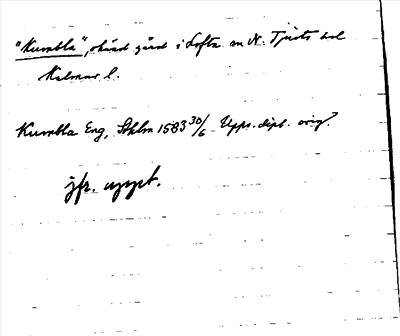 "Kumbla", okänd gård i Lofta sn N. Tjusts hd
Kalmar l.
Kumbla Eng, Sthlm 1583 30/6 Upps. dipl. orig.
jfr. uppt.